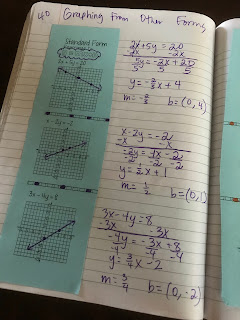 Graphing from Other Forms
Standard Form
2x + 5y = 20
x - 2y = -2
3x - 4y = 8
2x + 5y = 20
-2x -2x
5y = -2x + 20
5 5 5
y = -2/5 x + 4
m = -2/5 b = (0, 4)
x - 2y = -2
-x -x
-2y = -1x - 2
-2 -2 -2
y = 1/2 x + 1
m = 1/2 b = (0, 1)
3x - 4y = 8
-3x -3x
-4y = -3x + 8
-4 -4 -4
y = 3/4 x - 2
m = 3/4 b = (0, -2)